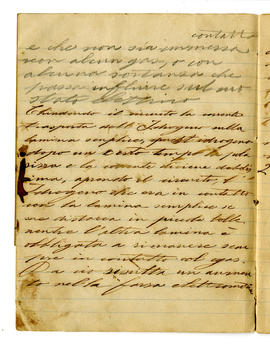 contatto
e che non sia immersa
non alcun gas, o con
alcuna sostanza che
possa influire sul suo
stato elettrico
Chiudendo il circuito la corrente
trasporta dell'Idrogeno sulla
lamina semplice, quest'idrogeno
dopo un certo tempo la pola
rizza e la corrente diviene debolis
sima, aprendo il circuito, l'
Idrogeno che era in contatto
con la lamina semplice se
ne distacca in piccole bolle
mentre l'altra lamina è
obbligata a rimanere sem
pre in contatto col gas.
Da ciò risulta un aumen
to nella forza elettromotri